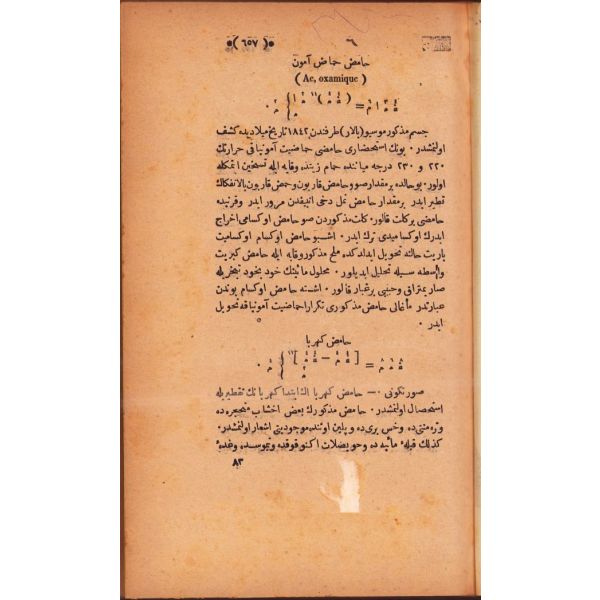 ﴿ ٦٥٧ ﴾
٦
حامض حماض آمون
( Ac, oxamique )
جسم مذكور موسيو (بالار) طرفندن ١٨٤٢ تاريخ ميلاديده كشف
اولنمشدر . بونك استحضارى حامضى حماضيت آمونياقى حرارتك
٢٢٠ و ٢٣٠ درجه سياننده حمام زيتده وقايه ايله تسخين ايتمكله
اولور . بو حالده بر مقدار صو و حامض قاربون و حمض قاربون بالانفكاك
تقطير ايدر بر مقدار حامض نمل دخى انبيقدن مرور ايدر و قرنيده
حامضى بر كلت قالور . كلت مذكوردن صو حامض اوكسامى اخراج
ايدرك اوكساميدى ترك ايدر . اشبو حامض اوكسام اوكساميت
باريت حالنه تحويل ايدلدكده ملح مذكور وقايه ايله حامض كبريت
واسطه سيله تحليل ايديلور . محلول مائيسنك خود بخود تبخيريله
صارمتراق وحبيبى بر غبار قالور . اشته حامض اوكسام بوندن
عبارتدر ماء غالى حامض مذكورى تكرار احماضيت آمونياقه تحويل
ايدر .
حامض كهربا
صورتكونى . — حامض كهربا اك ابتدا كهربانك تقطيريله
استحصال اولنمشدر . حامض مذكورك بعض اخشاب متحجره ده
وتره منتى ده وخس برى ده و پلين اوتنده موجوديتى اشعار اولنمشدر .
كذلك قيله ٔ مائيه ده و حويصلات اكنوقوقده و تيموسده وغده ٔ
٨٣